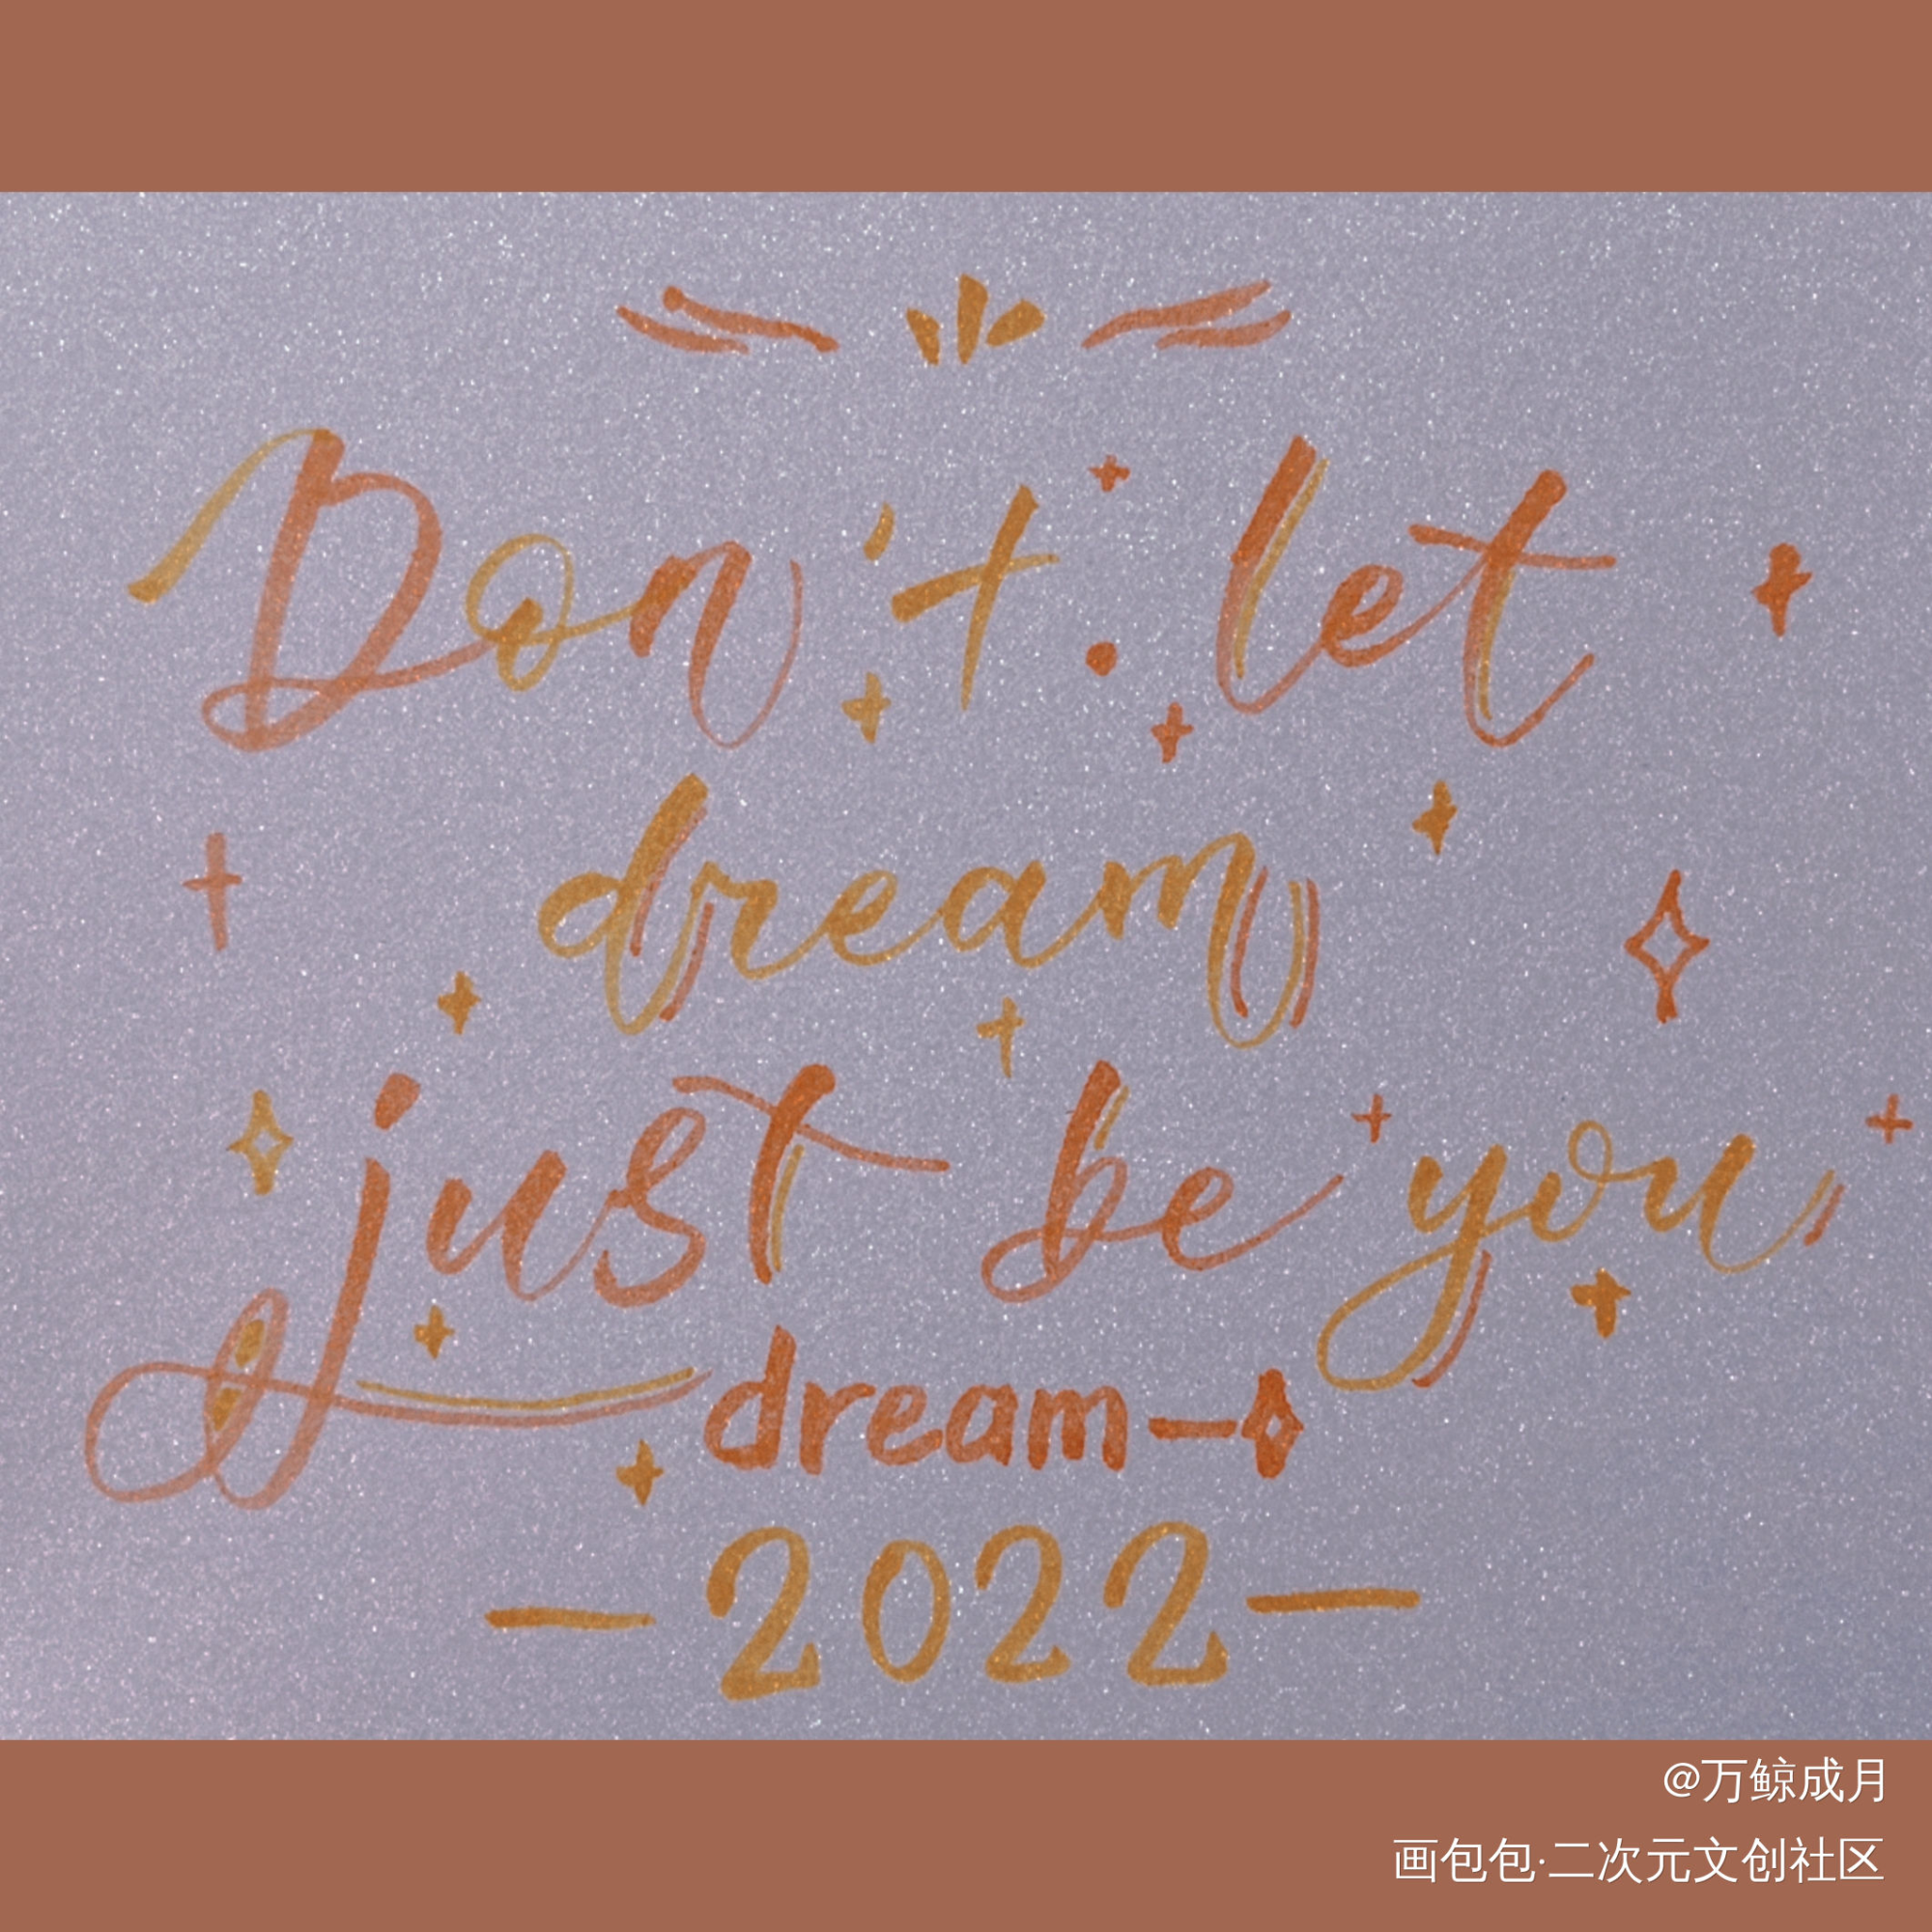 Don't let
dream
just be you
dream
2022
@万鲸成月
画包包·二次元文创社区